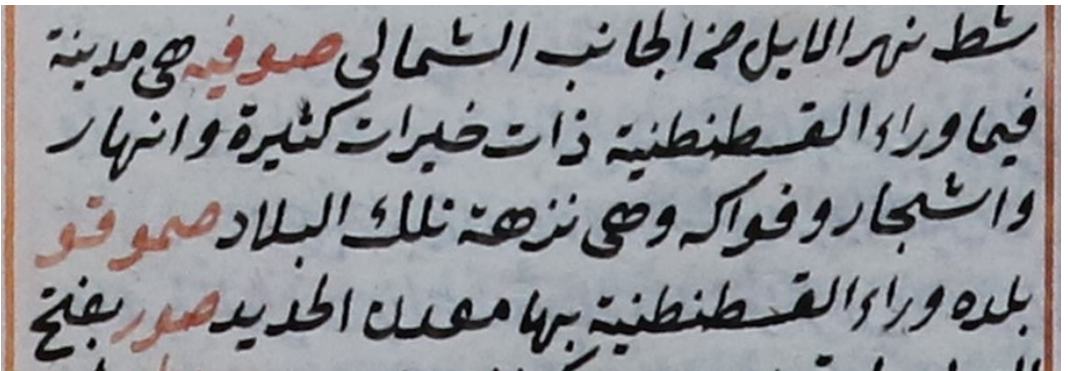 شط نهر المايل من الجانب الشمالى صوفيه هى مدينة
فيما وراء القسطنطنية ذات خيرات كثيرة وانهار
واشجار وفواكه وهى نزهة تلك البلاد صموقو
بلده وراء القسطنطنية بها معدن الحديد صور بفتح